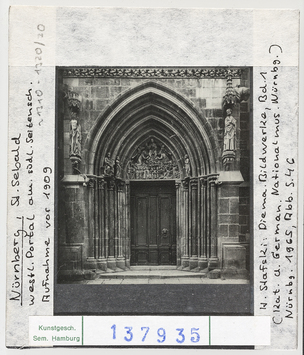 Nürnberg, St. Sebald
westl. Portal am südl. Seitensch.
~1310 - 1320/20
Aufnahme vor 1909
H. Stafski: Die ma. Bildwerke, Bd. 1
(Kat. d. German. Nationalmus. Nürnbg.)
Nürnbg. 1965, Abb. S. 46
Kunstgesch.
Sem. Hamburg
137935